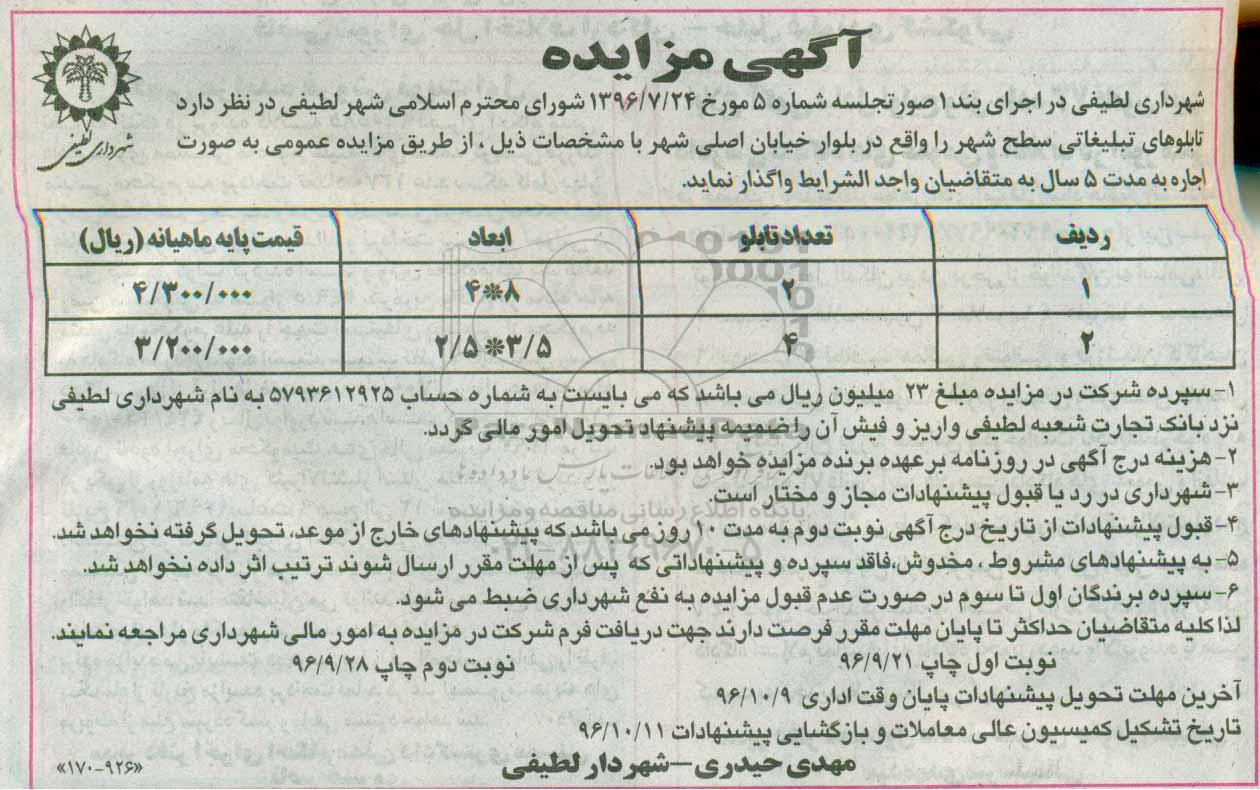 آگهی مزایده
شهرداری لطیفی
شهرداری لطیفی در اجرای بند ۱ صورتجلسه شماره ۵ مورخ ۱۳۹۶/۷/۲۴ شورای محترم اسلامی شهر لطیفی در نظر دارد
تابلوهای تبلیغاتی سطح شهر را واقع در بلوار خیابان اصلی شهر با مشخصات ذیل ، از طریق مزایده عمومی به صورت
اجاره به مدت ۵ سال به متقاضیان واجد الشرایط واگذار نماید.
ردیف تعداد تابلو ابعاد قیمت پایه ماهیانه (ریال)
۱ ۲ ۸*۴ ۴/۳۰۰/۰۰۰
۲ ۴ ۳/۵*۲/۵ ۳/۲۰۰/۰۰۰
۱-سپرده شرکت در مزایده مبلغ ۲۳ میلیون ریال می باشد که می بایست به شماره حساب ۵۷۹۳۶۱۲۹۲۵ به نام شهرداری لطیفی
نزد بانک تجارت شعبه لطیفی واریز و فیش آن را ضمیمه پیشنهاد تحویل امور مالی گردد.
۲-هزینه درج آگهی در روزنامه بر عهده برنده مزایده خواهد بود.
۳-شهرداری در رد یا قبول پیشنهادات مجاز و مختار است.
۴-قبول پیشنهادات از تاریخ درج آگهی نوبت دوم به مدت ۱۰ روز می باشد که پیشنهادهای خارج از موعد، تحویل گرفته نخواهد شد.
۵-به پیشنهادهای مشروط ، مخدوش،فاقد سپرده و پیشنهاداتی که پس از مهلت مقرر ارسال شوند ترتیب اثر داده نخواهد شد.
۶-سپرده برندگان اول تا سوم در صورت عدم قبول مزایده به نفع شهرداری ضبط می شود.
لذا کلیه متقاضیان حداکثر تا پایان مهلت مقرر فرصت دارند جهت دریافت فرم شرکت در مزایده به امور مالی شهرداری مراجعه نمایند.
نوبت اول چاپ ۹۶/۹/۲۱ نوبت دوم چاپ ۹۶/۹/۲۸
آخرین مهلت تحویل پیشنهادات پایان وقت اداری ۹۶/۱۰/۹
تاریخ تشکیل کمیسیون عالی معاملات و بازگشایی پیشنهادات ۹۶/۱۰/۱۱
مهدی حیدری-شهردار لطیفی
«۱۷۰-۹۲۶»